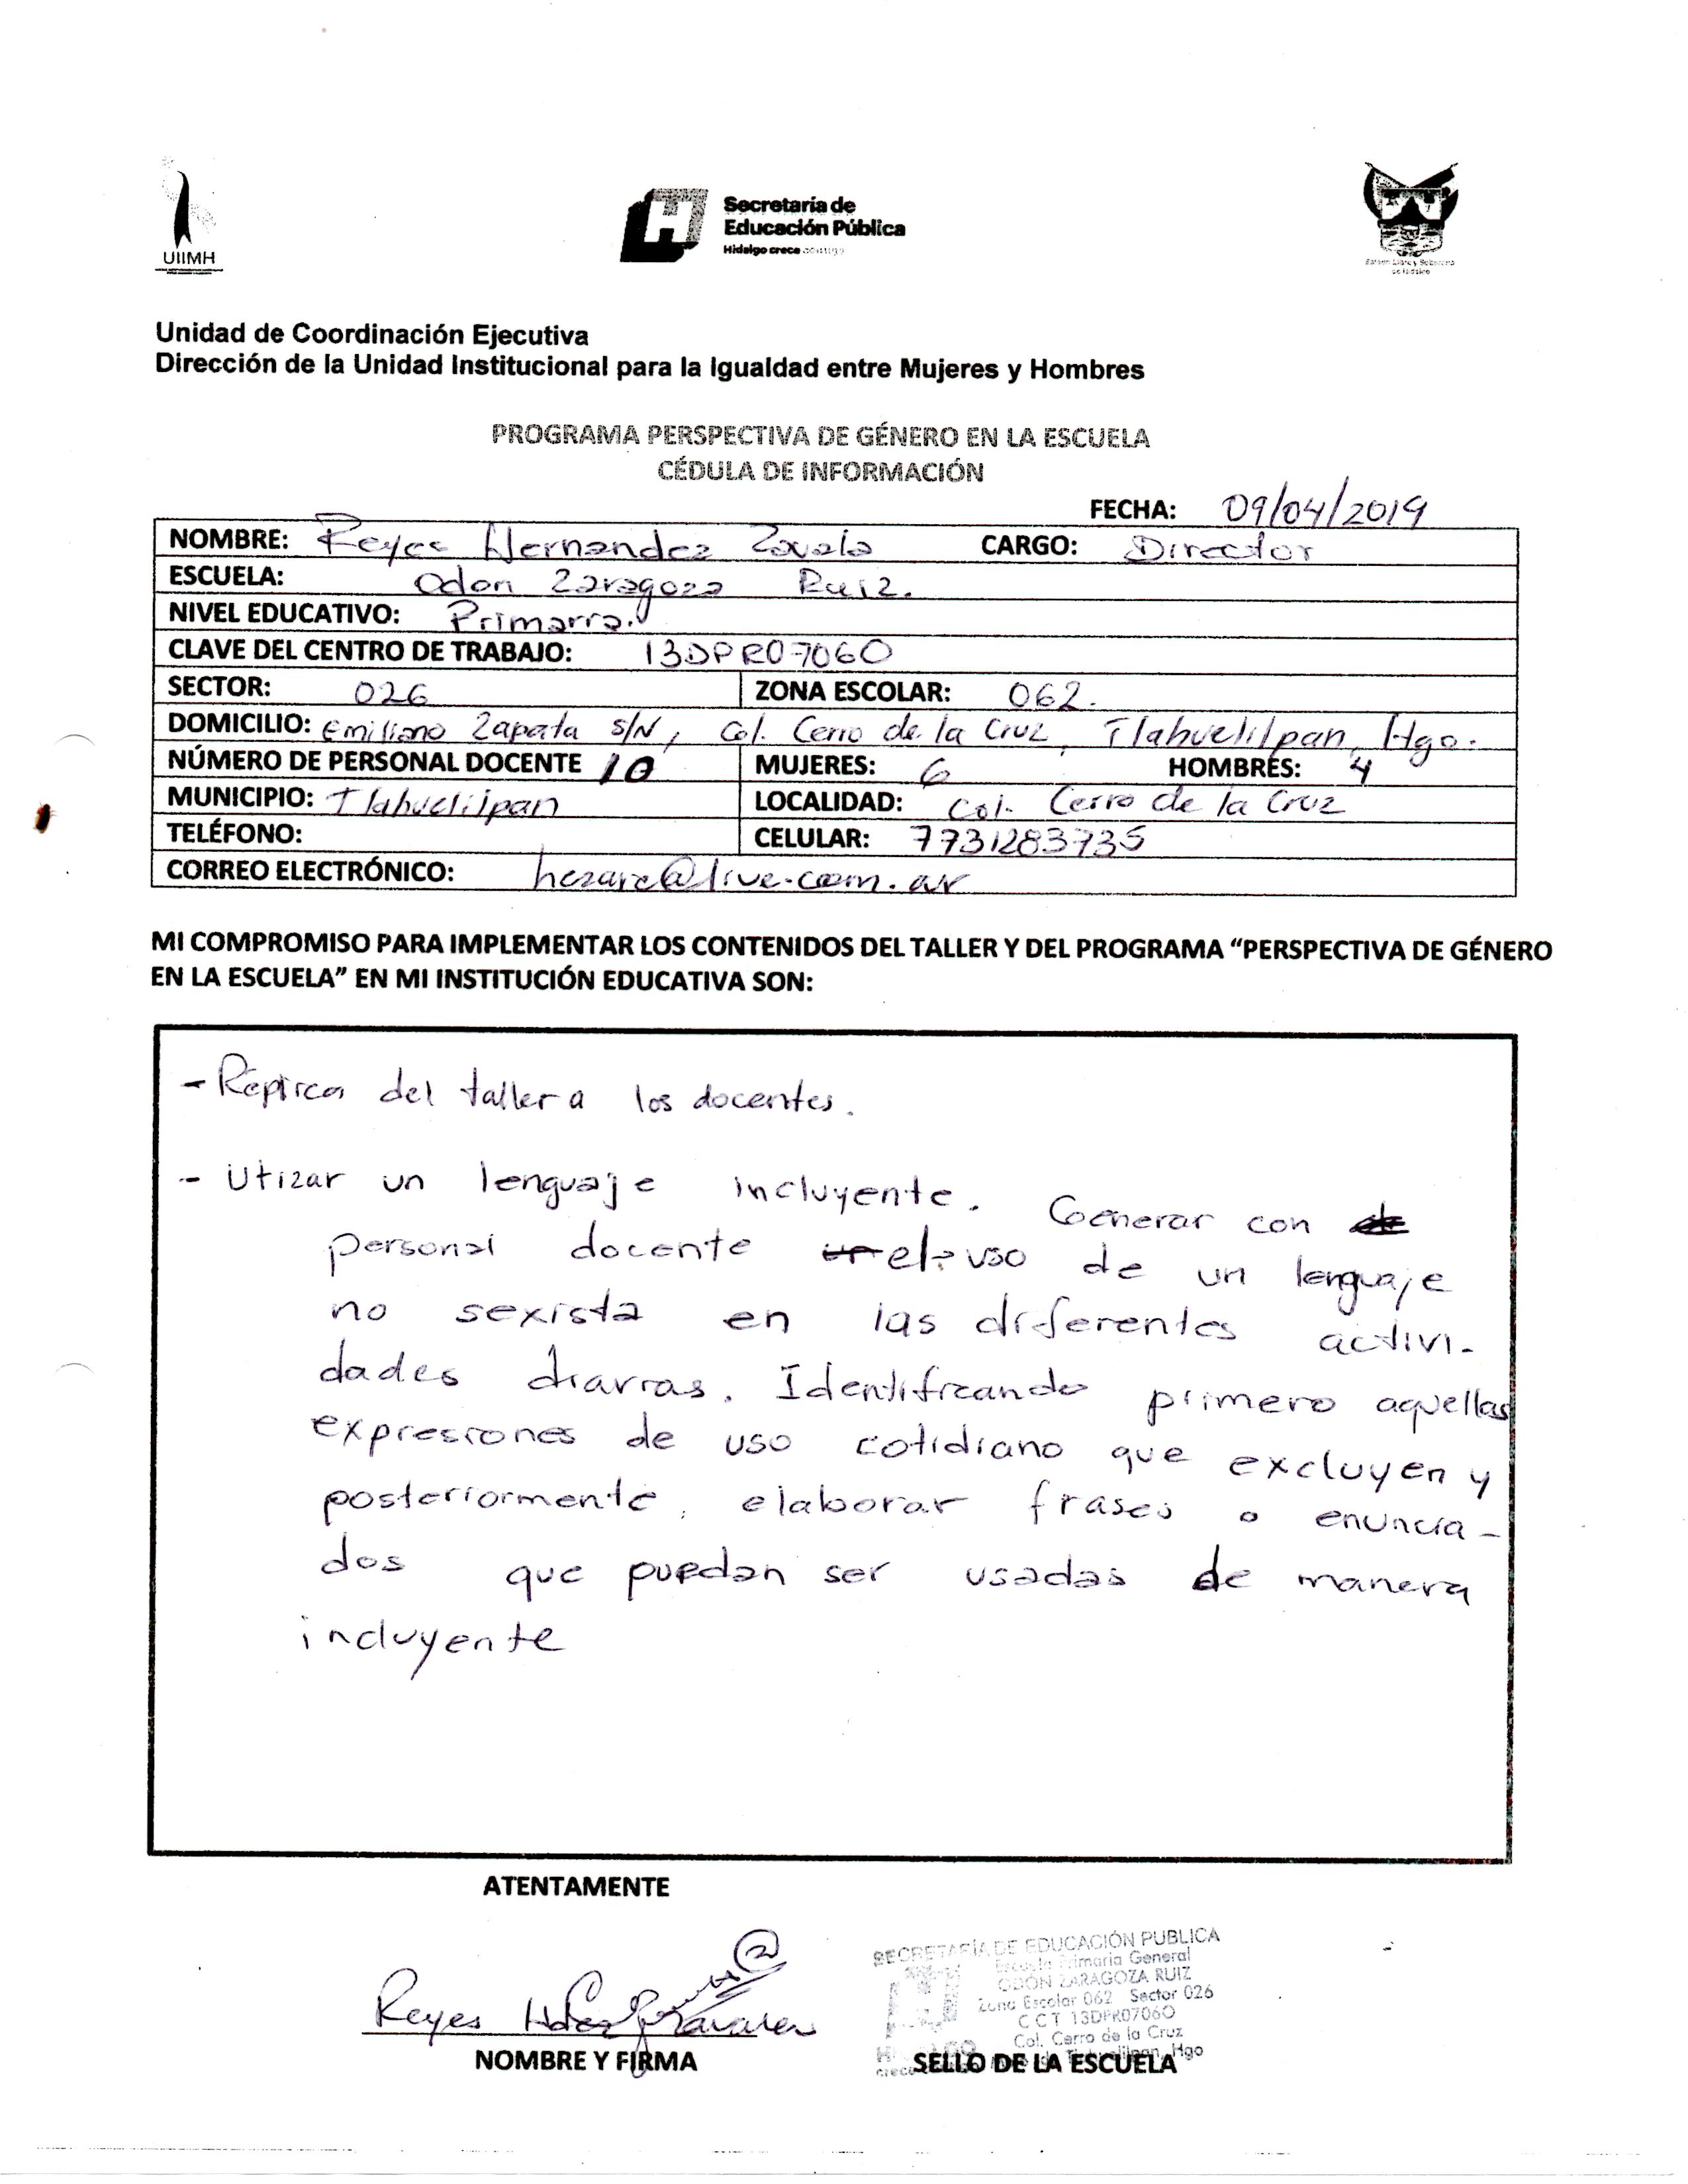 UIIMH
Secretaría de
Educación Pública
Hidalgo crece contigo
Estado Libre y Soberano
de Hidalgo
Unidad de Coordinación Ejecutiva
Dirección de la Unidad Institucional para la Igualdad entre Mujeres y Hombres
PROGRAMA PERSPECTIVA DE GÉNERO EN LA ESCUELA
CÉDULA DE INFORMACIÓN
FECHA: 09/04/2019
NOMBRE: Reyes Hernandez Zavala CARGO: Director
ESCUELA: Odon Zaragoza Ruiz.
NIVEL EDUCATIVO: Primaria.
CLAVE DEL CENTRO DE TRABAJO: 13DPR0706O
SECTOR: 026 ZONA ESCOLAR: 062.
DOMICILIO: Emiliano Zapata s/N, Col. Cerro de la Cruz, Tlahuelilpan, Hgo.
NÚMERO DE PERSONAL DOCENTE 10 MUJERES: 6 HOMBRES: 4
MUNICIPIO: Tlahuelilpan LOCALIDAD: Col. Cerro de la Cruz
TELÉFONO: CELULAR: 7731283735
CORREO ELECTRÓNICO: @live.com.ar
MI COMPROMISO PARA IMPLEMENTAR LOS CONTENIDOS DEL TALLER Y DEL PROGRAMA “PERSPECTIVA DE GÉNERO
EN LA ESCUELA” EN MI INSTITUCIÓN EDUCATIVA SON:
- Réplica del taller a los docentes.
- Utizar un lenguaje incluyente. Generar con
personal docente el uso de un lenguaje
no sexista en las diferentes activi-
dades diarias. Identificando primero aquellas
expresiones de uso cotidiano que excluyen y
posteriormente, elaborar frases o enuncia-
dos que puedan ser usadas de manera
incluyente
ATENTAMENTE
SECRETARÍA DE EDUCACIÓN PUBLICA
Escuela Primaria General
ODÓN ZARAGOZA RUIZ
Zona Escolar 062 Sector 026
CCT 13DPR0706O
Col. Cerro de la Cruz
Hgo
Reyes
NOMBRE Y FIRMA
SELLO DE LA ESCUELA